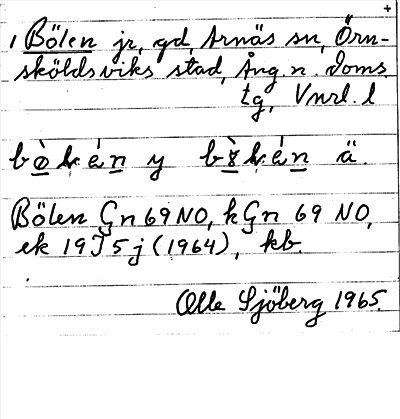 +
1 Bölen jr, gd, Arnäs sn, Örn-
sköldsviks stad, Ång. n. doms.
tg, Vnrl. l
y ä.
Bölen Gn 69 NO, kGn 69 NO,
ek 19J5j (1964), kb.
Olle Sjöberg 1965.